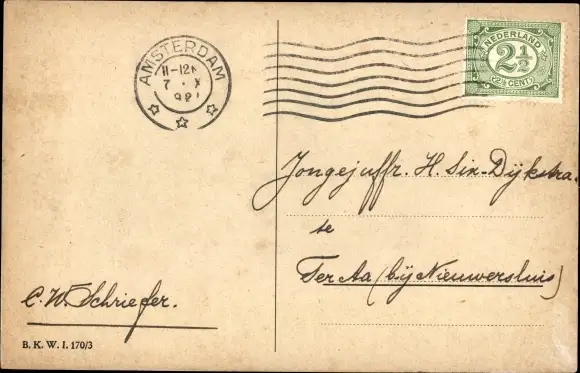 AMSTERDAM
11-12
7 X
NEDERLAND
2½
(2½ CENT)
Jongejuffr. H. Six-Dijkstra.
te
Ter Aa (bij Nieuwersluis)
C. W. Schriefer.
B. K. W. I. 170/3